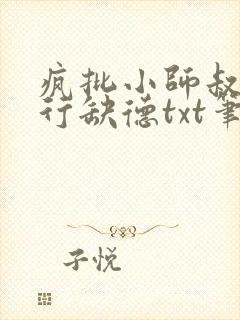 疯批小师叔
行缺德txt笔
子悦